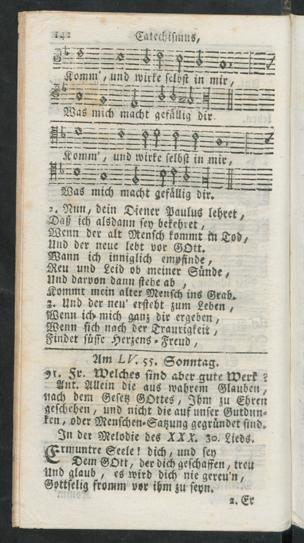 142 Catechismus,
Komm', und wirke selbst in mir,
Was mich macht gefällig dir.
Komm', und wirke selbst in mir,
Was mich macht gefällig dir.
2. Nun, dein Diener Paulus lehret,
Daß ich alsdann sey bekehret,
Wenn der alt Mensch kommt in Tod,
Und der neue lebt vor GOtt.
Wann ich inniglich empfinde,
Reu und Leid ob meiner Sünde,
Und darvon dann stehe ab,
Kommt mein alter Mensch ins Grab.
3. Und der neu' ersteht zum Leben,
Wenn ich mich ganz dir ergeben,
Wenn sich nach der Traurigkeit,
Findet süsse Herzens-Freud,
Am LV. 55. Sonntag.
91. Fr. Welches sind aber gute Werk?
Ant. Allein die aus wahrem Glauben,
nach dem Gesetz GOttes, Ihm zu Ehren
geschehen, und nicht die auf unser Gutdun-
ken, oder Menschen-Satzung gegründet sind.
In der Melodie des XXX. 30. Lieds.
Ermuntre Seele! dich, und sey
Dem GOtt, der dich geschaffen, treu
Und glaub, es wird dich nie gereu'n,
Gottselig fromm vor ihm zu seyn.
2. Er